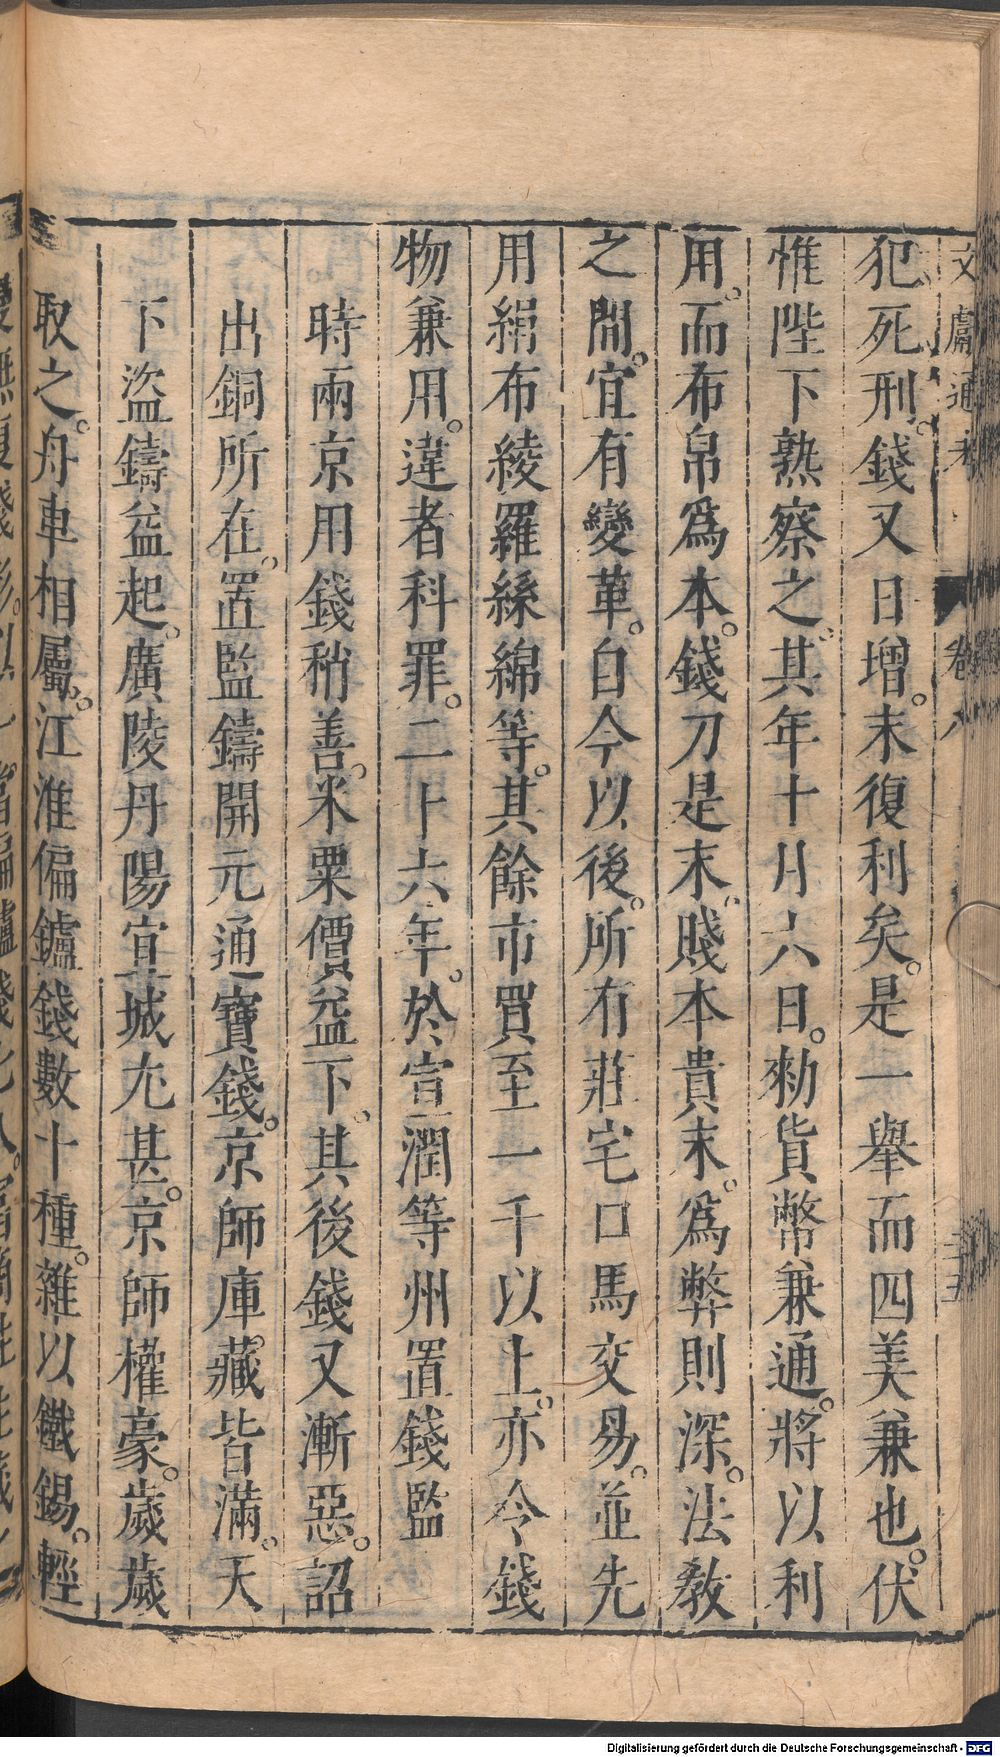 文獻通考 卷八
犯死刑。錢又日增。末復利矣。是一舉而四美兼也。伏
惟陛下熟察之。其年十月六日。勑貨幣兼通。將以利
用。而布帛爲本。錢刀是末。賤本貴末。爲弊則深。法敎
之間。宜有變革。自今以後。所有莊宅口馬交易。並先
用絹布綾羅絲綿等。其餘市買至一千以上。亦令錢
物兼用。違者科罪。二十六年。於宣潤等州置錢監
時兩京用錢稍善。米粟價益下。其後錢又漸惡。詔
出銅所在。置監鑄開元通寶錢。京師庫藏皆滿。天
下盜鑄益起。廣陵丹陽宣城尤甚。京師權豪。歲歲
取之。舟車相屬。江淮偏鑪錢數十種。雜以鐵錫。輕
Digitalisierung gefördert durch die Deutsche Forschungsgemeinschaft - DFG